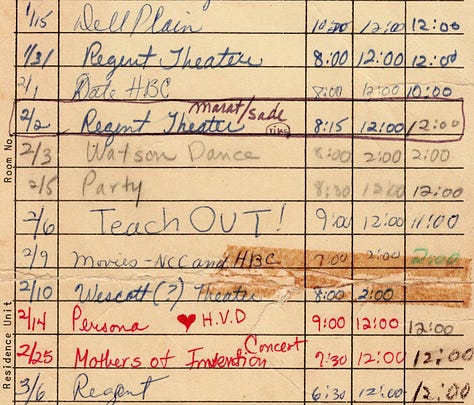 1/15 Dell Plain 10:30 12:00 12:00
1/31 Regent Theater 8:00 12:00 12:00
2/1 Date HBC 8:00 12:00 10:00
marat/sade
2/2 Regent Theater 8:15 12:00 12:00
2/3 Watson Dance 8:00 2:00 2:00
2/5 Party 8:30 12:00 12:00
2/6 Teach OUT! 9:00 12:00 11:00
2/9 Movies-NCC and HBC 7:00 2:00 2:00
2/10 Wescott (?) Theater 8:00 2:00
2/14 Persona ♥ H.V.D 9:00 12:00 12:00
Concert
2/25 Mothers of Invention 7:30 12:00 12:00
3/6 Regent 6:30 12:00 12:00
Room No
Residence Unit